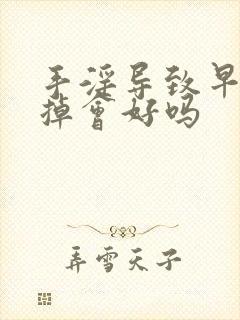 手淫导致早
掉会好吗
弄雪天子